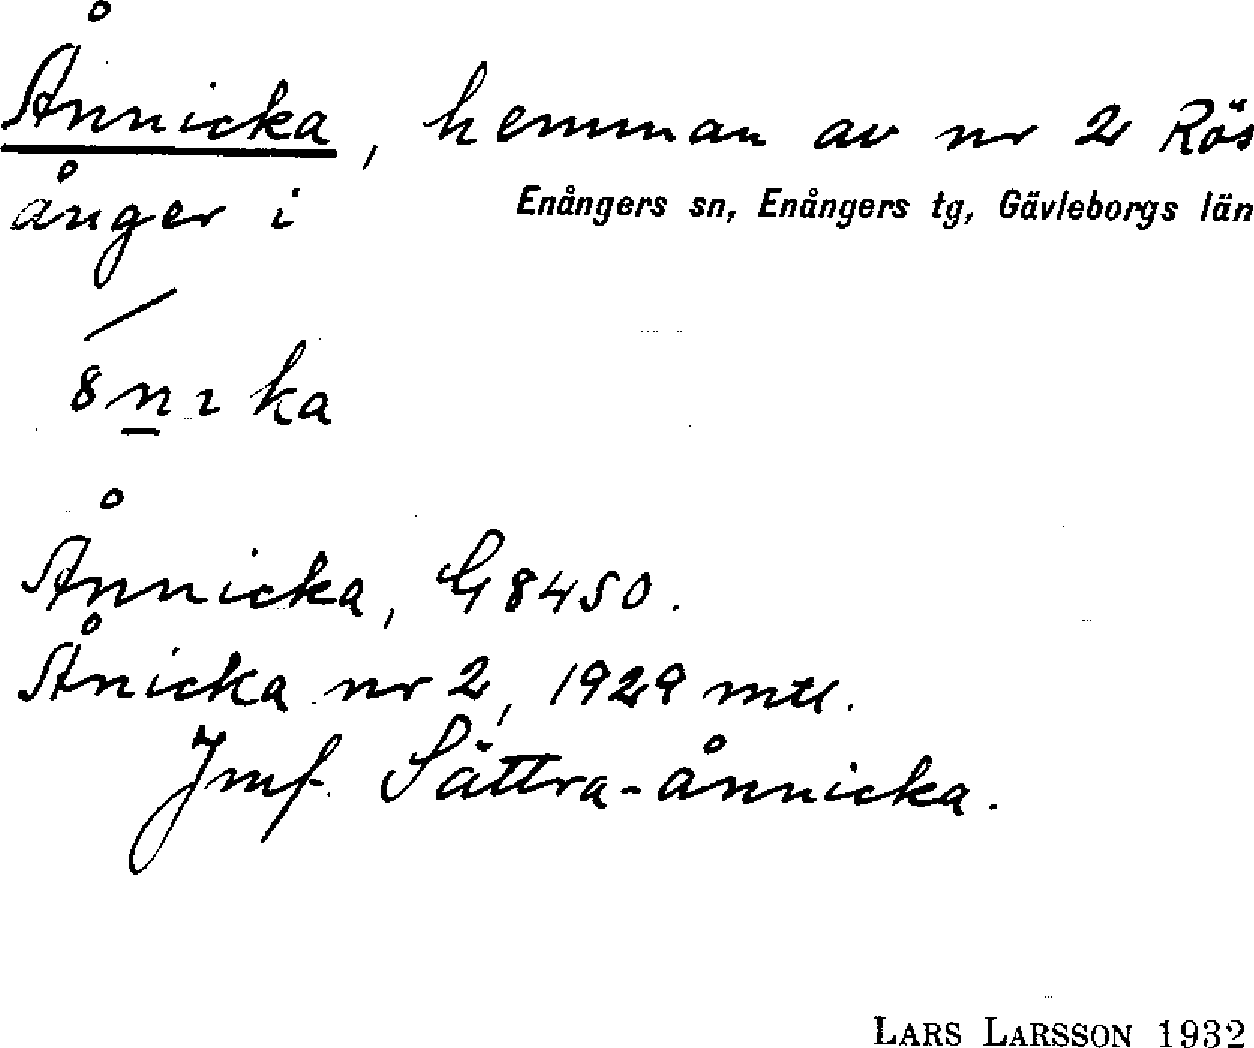 Ånnicka, hemman av nr 2 Rös
ånger i Enångers sn, Enångers tg, Gävleborgs län
8n̲ɩka
Ånnicka, G8450.
Ånicka nr 2, 1929 mtl.
Jmf. Sättra-ånnicka.
LARS LARSSON 1932